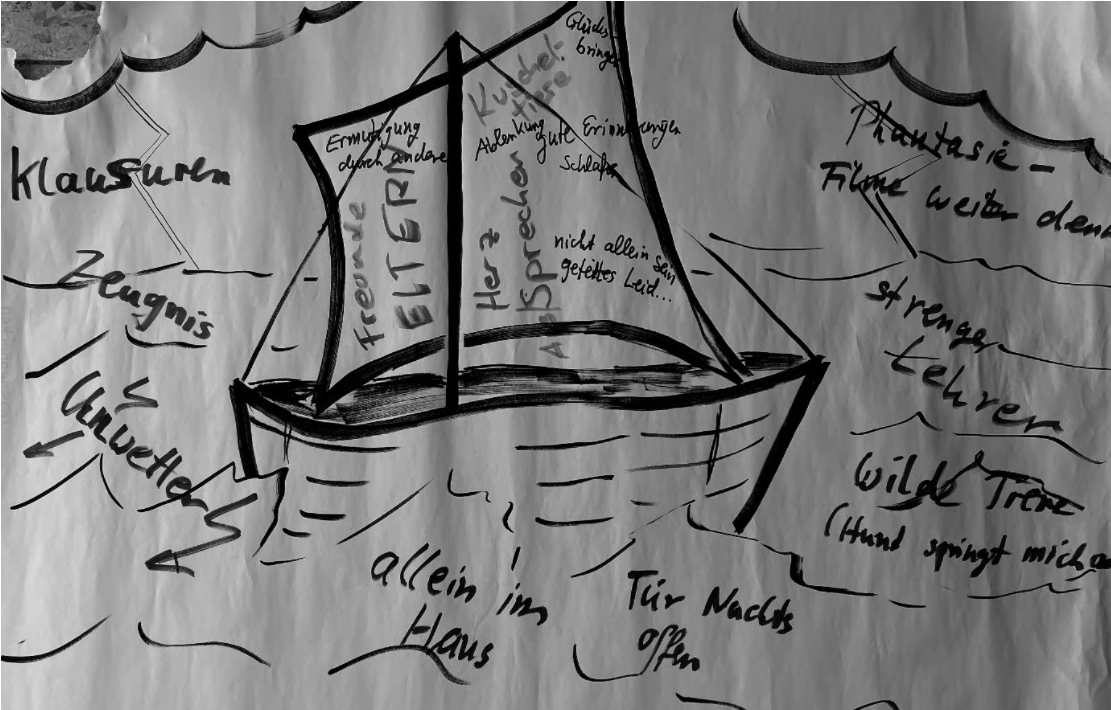 Glücks-
bringer
Kuschel-
tiere
Ermutigung
durch andere
Ablenkung
gute Erinnerungen
Schlafen
Freunde
ELTERN
Herz
Sprechen
nicht allein sein
geteiltes Leid...
Klausuren
Zeugnis
Unwetter
Phantasie -
Filme weiter denk
strenge
Lehrer
Wilde Tiere
(Hund springt mich an
allein im
Haus
Tür Nachts
offen